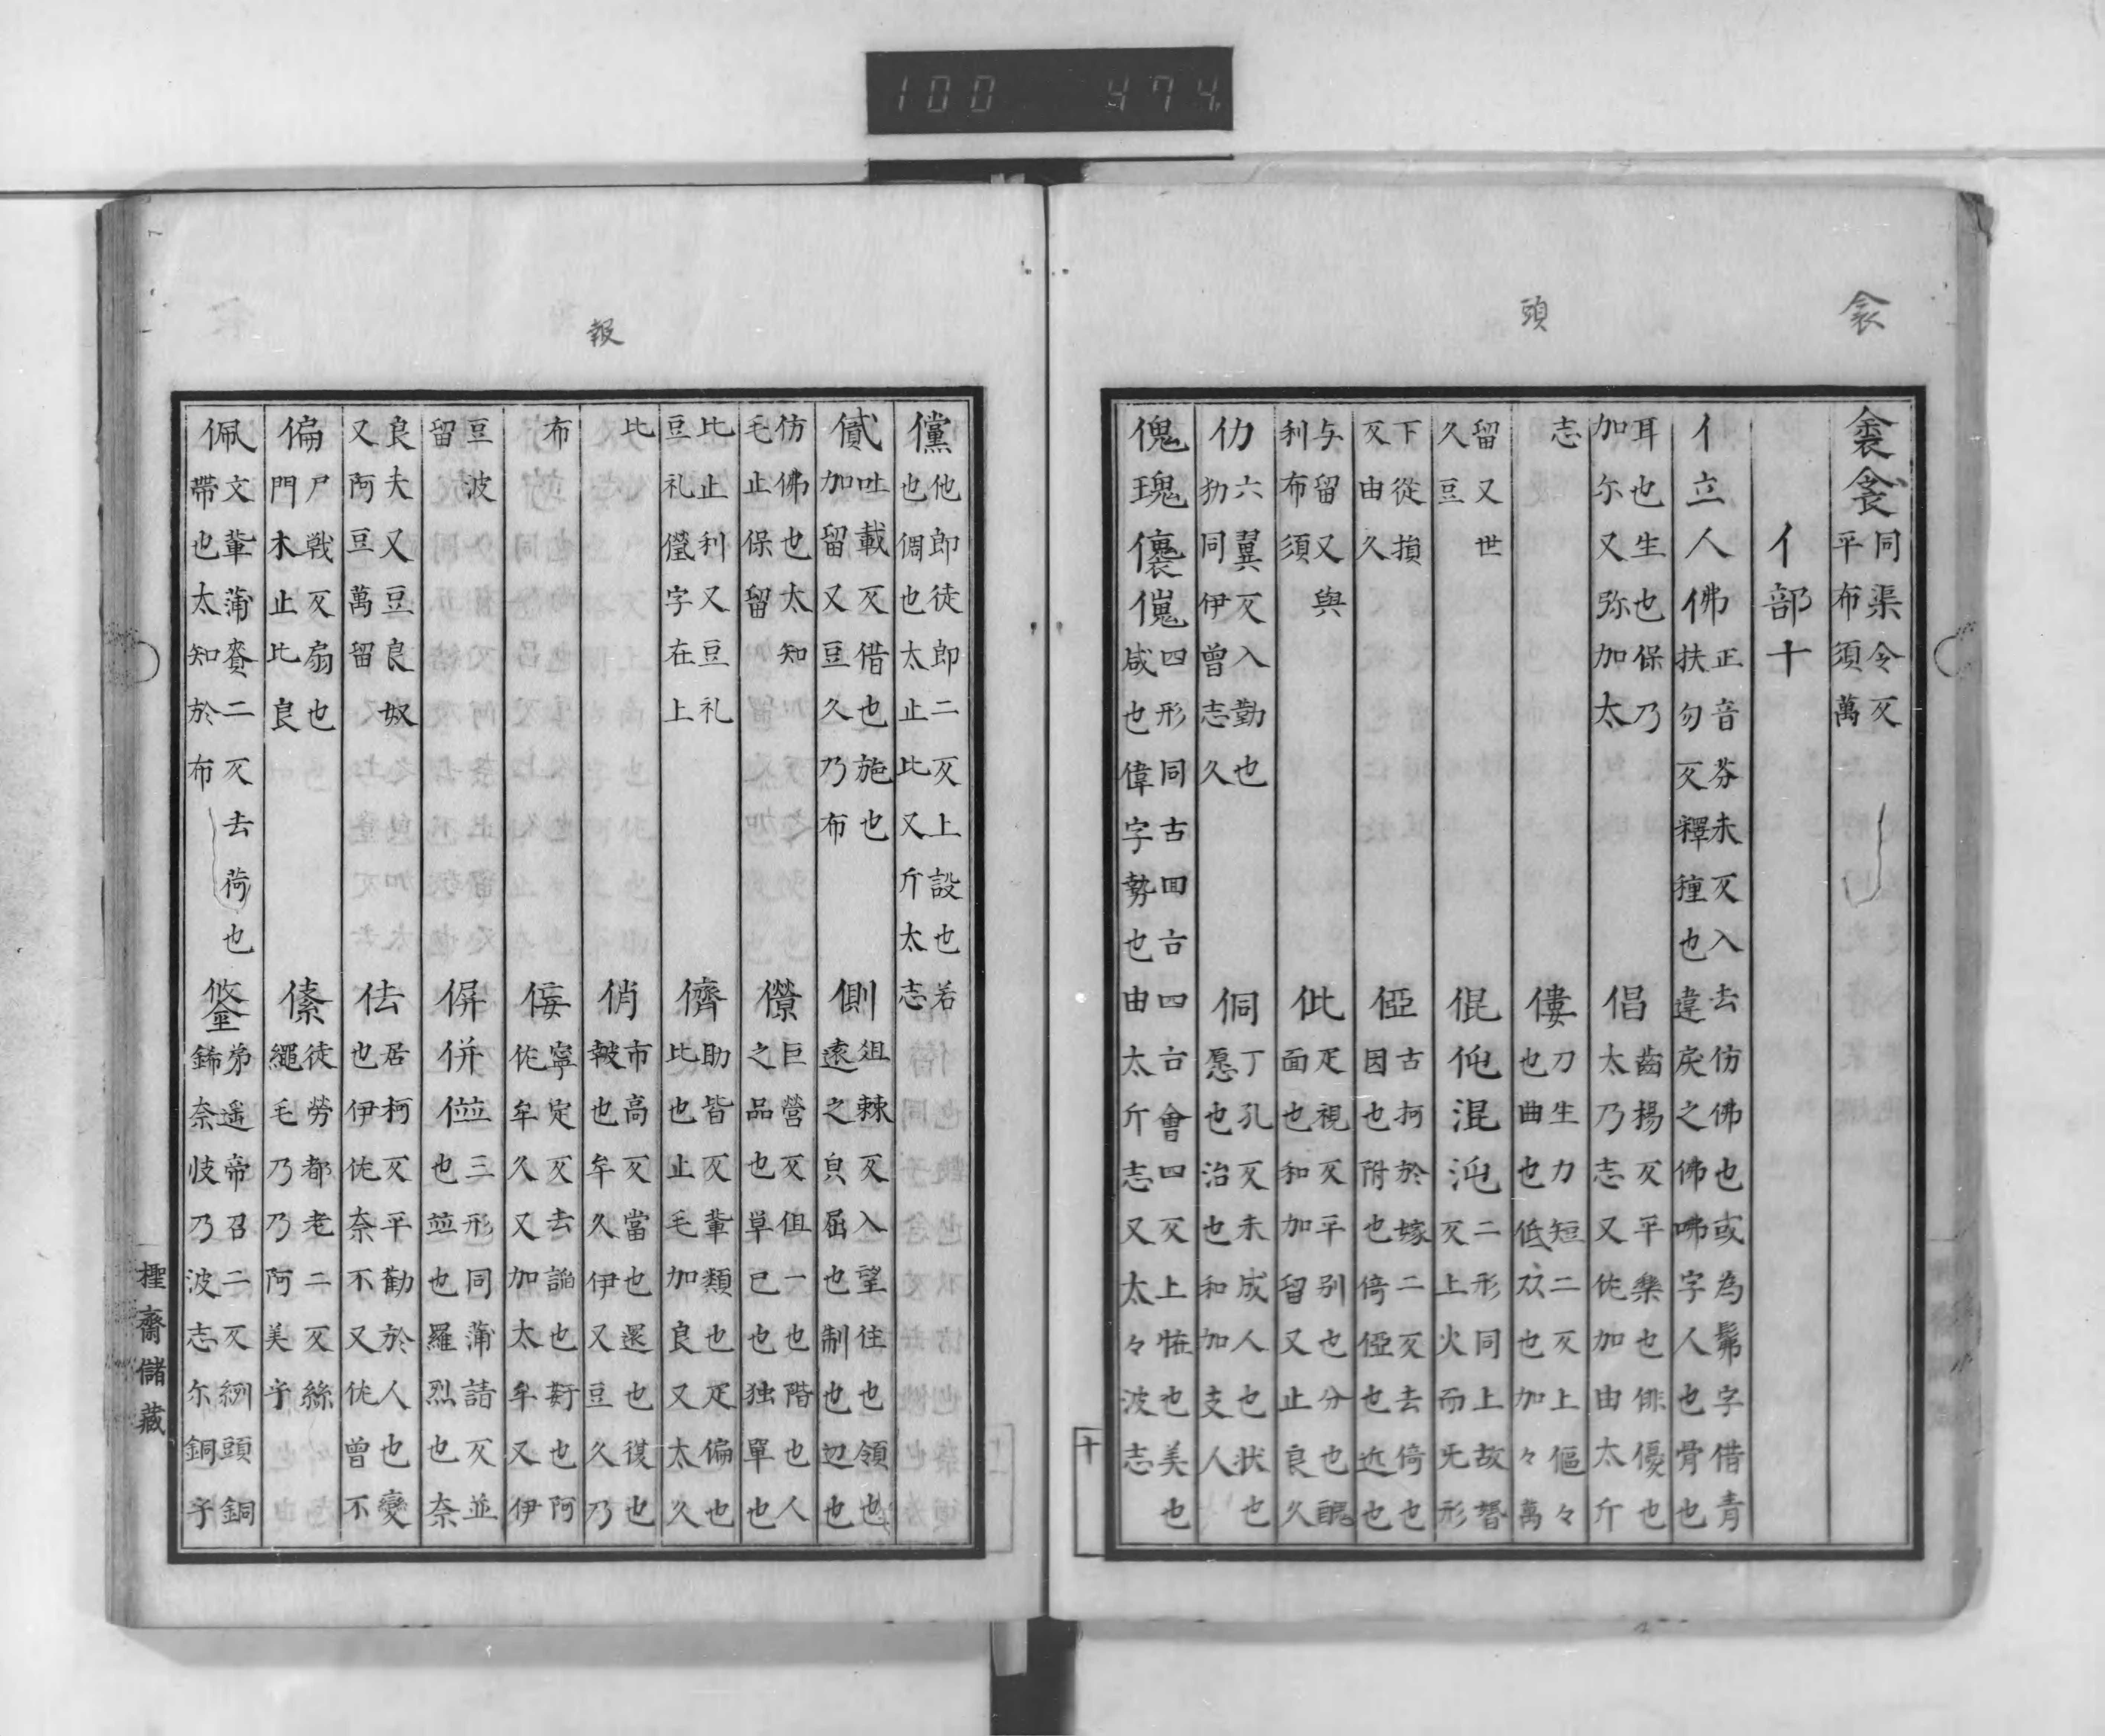 衾
頭
同渠令反
平布須萬
亻部十
亻立人
佛
正音芬未反入去仿佛也或為髴字借青
扶勿反釋種也違戾之佛咈字人也骨也
耳也生也保乃
加尓又弥加太
倡
齒楊反平樂也俳優也
太乃志又佐加由太斤
志
僂
刀生力短二反上傴々
也曲也低双也加々萬
留又世
久豆
倱伅混沌
二形同上故瞀
反上火而旡形
下從損
反由久
俹
古柯於嫁二反去倚也
因也附也倚俹也近也
与留又與
利布須
仳
疋視反平别也分也醜
面也和加留又止良久
仂
六翼反入勤也
同伊曾志久
侗
丁孔反未成人也状也
愿也治也和加支人
傀瑰
四形同古回古四古會四反上恠也美也
咸也偉字勢也由太斤志又太々波志
十
報
儻
他即徒即二反上設也若
也倜也太止比又斤太志
貣
吐載反借也施也
加留又豆久乃布
側
俎棘反入望住也領也
遠之㒵屈也制也辺也
仿佛也太知
毛止保留
儝
巨營反但一也階也人
之品也草已也也独單也
比止利又豆礼
豆礼儝字在上
儕
助皆反輩類也疋偏也
比也止毛加良又太久
比
俏
市高反當也還也復也
皴也牟久伊又豆久乃
布
侫
寧定反去諂也也阿
佐牟久又加太牟又伊
豆波
留
偋併並
三形同蒲請反並
也並也羅烈也奈
良夫又豆良奴
又阿豆萬留
佉
居柯反平勸於人也變
也伊佐奈不又佐曾不
偏
尸戦反扇也
門木止比良
傃
徒勞都老二反絲
繩毛乃乃阿美子
佩
文輩蒲賚二反去荷也
帶也太知於布
鋚
弟遥帝召二反紖頭銅
鉢奈岐乃波志尓銅子
㮨齋儲藏